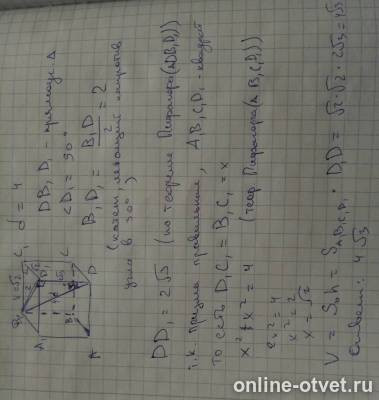 d = 4
DB₁D₁ - прямоуг. Δ
∠D₁ = 90°
B₁D₁ = B₁D / 2 = 2
(катет, лежащий напротив
угла в 30°)
DD₁ = 2√3 (по теореме Пифагора(ΔDB₁D₁))
т.к. призма правильная, A₁B₁C₁D₁ - квадрат
то есть D₁C₁ = B₁C₁ = x
x² + x² = 4 (теор Пифагора(Δ B₁C₁D₁))
2x² = 4
x² = 2
x = √2
V = Sоh = S A₁B₁C₁D₁ · D₁D = √2·√2 · 2√3 = 4√3
Ответ: 4√3
online-otvet.ru